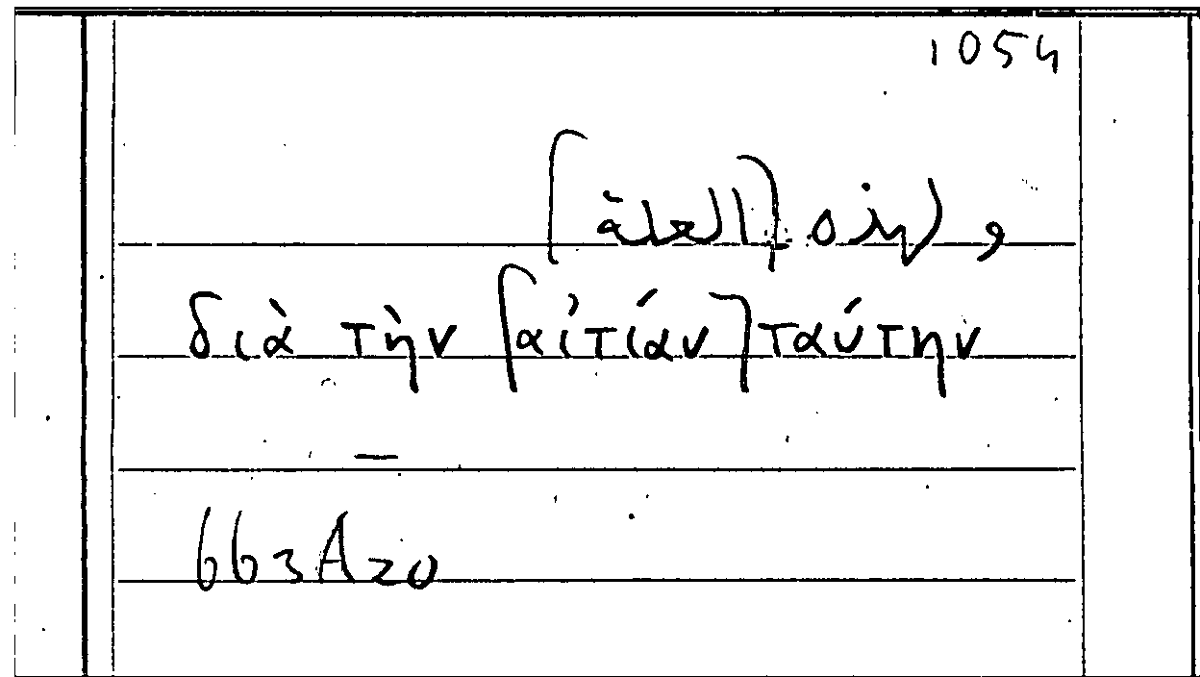 1054
و لهذه [العلة]
διὰ τὴν [αἰτίαν] ταύτην
—
663A20